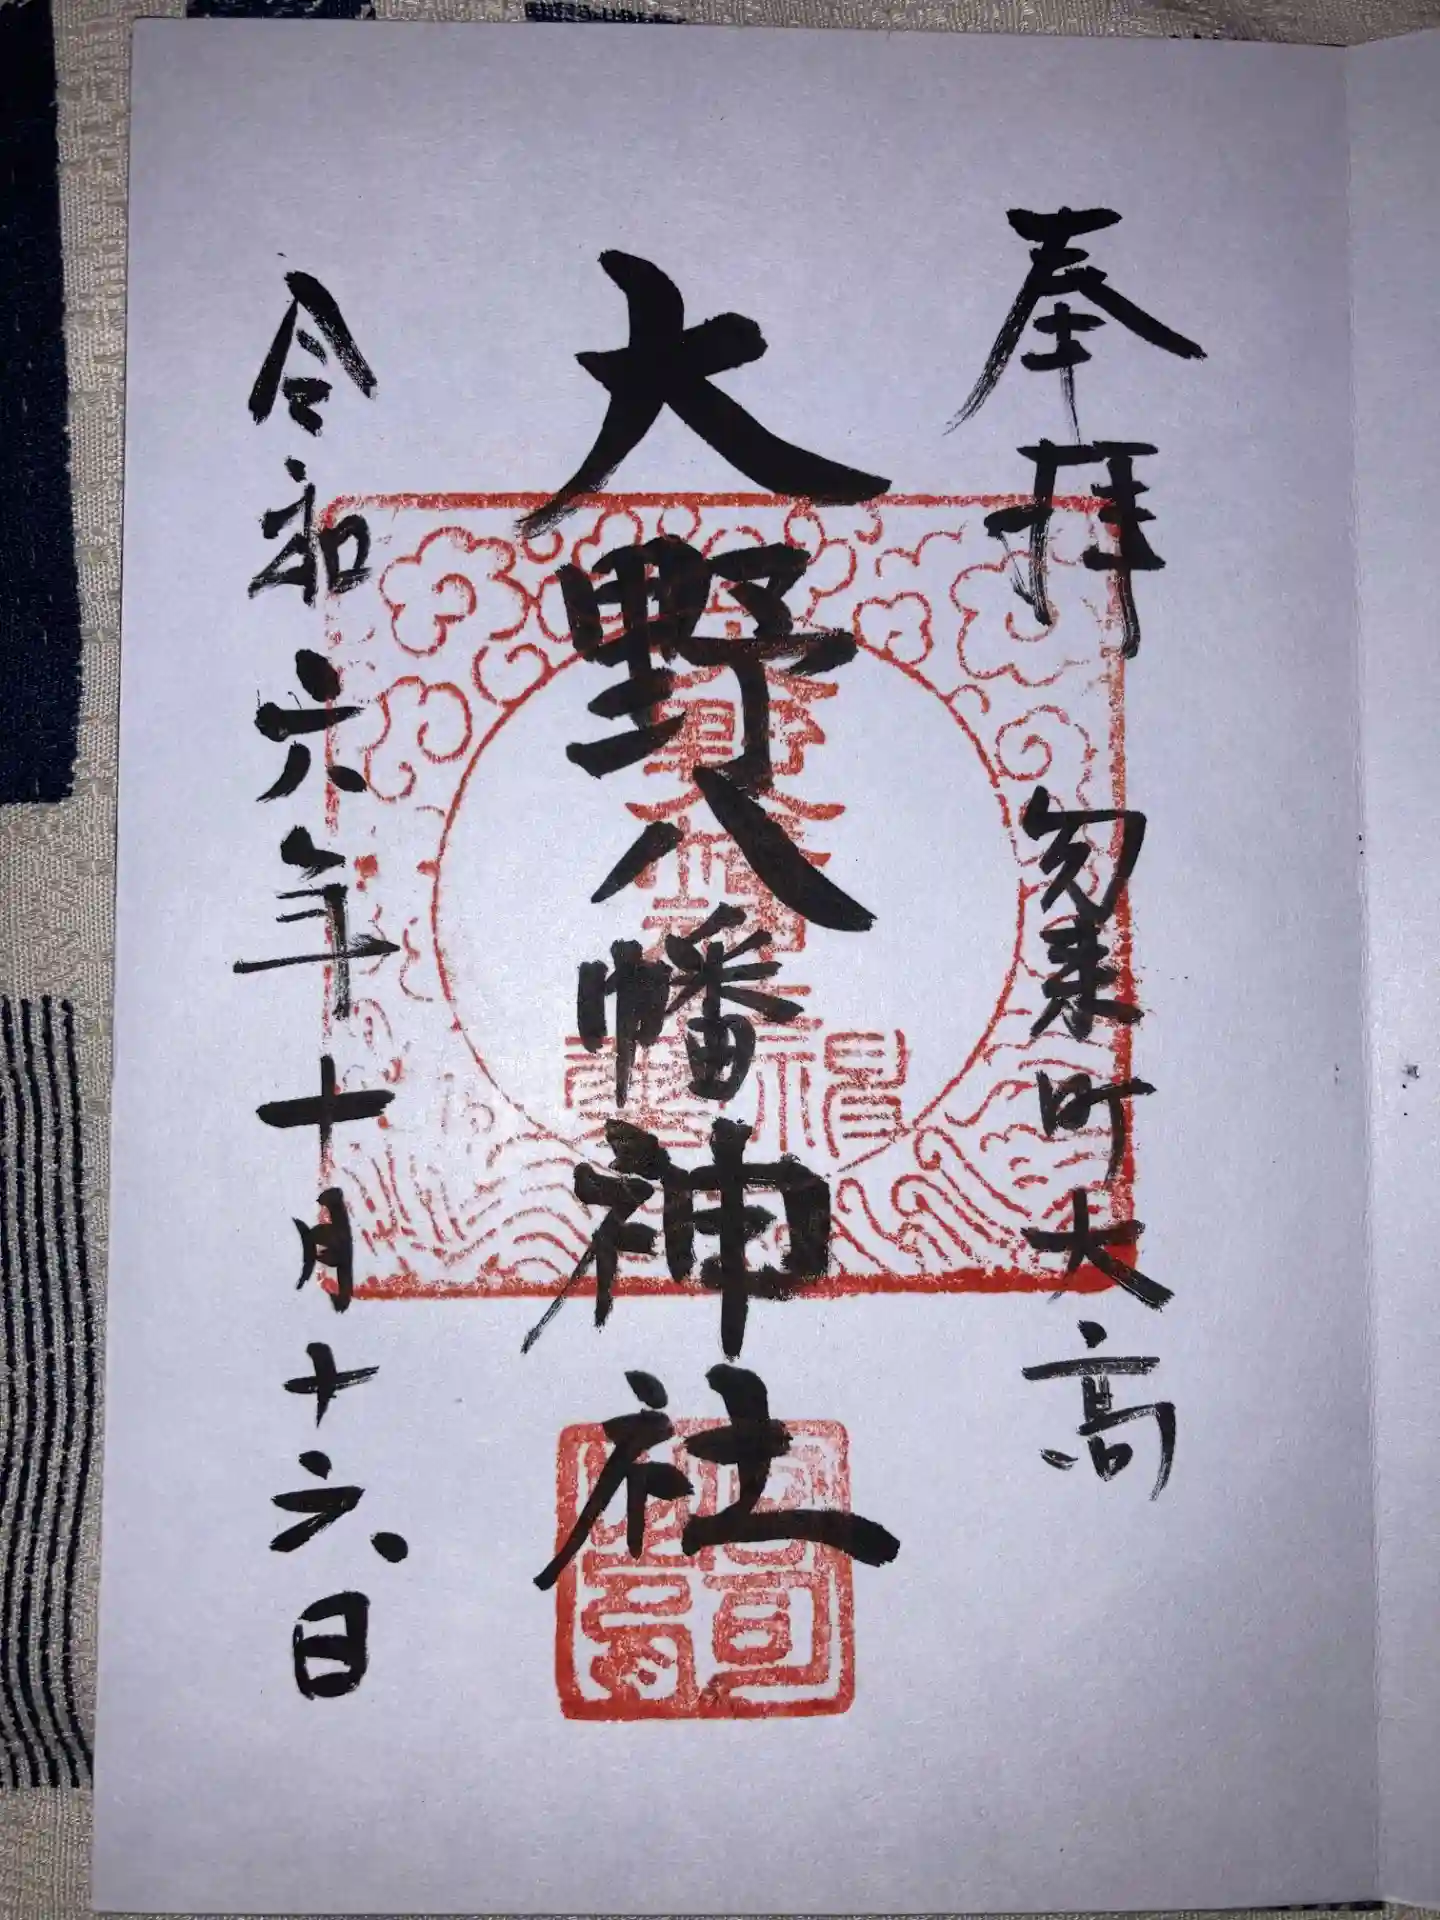 奉拝　勿来町大高
大野八幡神社
令和六年十月十六日